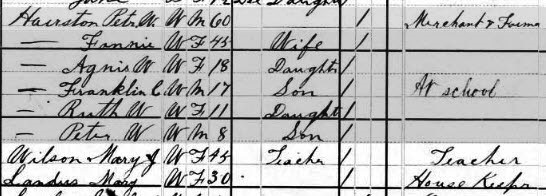 Hairston Petr W W M 60 / Merchant & Farme
— Fannie W F 45 Wife /
— Agnis W W F 18 Daught /
— Franklin C W M 17 Son / At school
— Ruth W W F 11 Daught /
— Peter W W M 8 Son /
Wilson Mary J W F 45 Teacher / Teacher
Landus Mary W F 30 / House Keeper